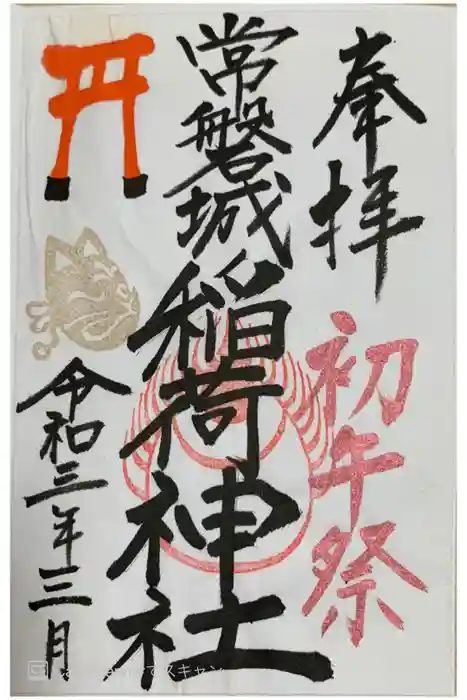 奉拝
初午祭
常磐城
稲荷神社
令和三年三月
でスキャン